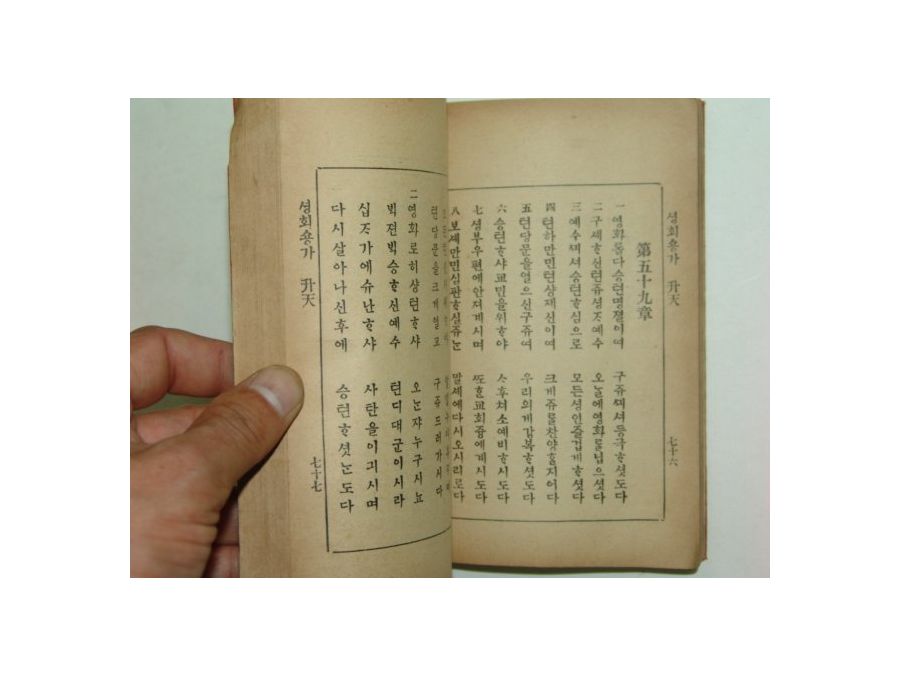 셩회숑가 升天 七十六
第五十九章
一 영화롭다승텬명졀이여 구쥬ᄭᅴ셔등극ᄒᆞ셧도다
二 구셰ᄒᆞ신텬쥬셩ᄌᆞ예수 오ᄂᆞᆯ에영화ᄅᆞᆯ닙으셧다
三 예수ᄭᅴ셔승텬ᄒᆞ심으로 모든셩인즐겁게ᄒᆞ셧다
四 텬하만민텬샹졔신이여 크게쥬ᄅᆞᆯ찬양ᄒᆞᆯ지어다
五 텬당문을열으신구쥬여 우리의게감복ᄒᆞ셧도다
六 승텬ᄒᆞ샤교민을위ᄒᆞ야 ᄉᆞ후쳐소예비ᄒᆞ시도다
七 셩부우편에안져계시며 ᄯᅩᄒᆞᆫ교회즁에계시도다
八 보셰만민심판ᄒᆞ실쥬ᄂᆞᆫ 말셰에다시오시리로다
텬당문을크게열고 구쥬드러가시다
二 영화로히샹텬ᄒᆞ샤 오ᄂᆞᆫ쟈누구시뇨
ᄇᆡᆨ젼ᄇᆡᆨ승ᄒᆞ신예수 텬디대군이시라
십ᄌᆞ가에슈난ᄒᆞ샤 사탄을이긔시며
다시살아나신후에 승텬ᄒᆞ셧ᄂᆞᆫ도다
셩회숑가 升天 七十七